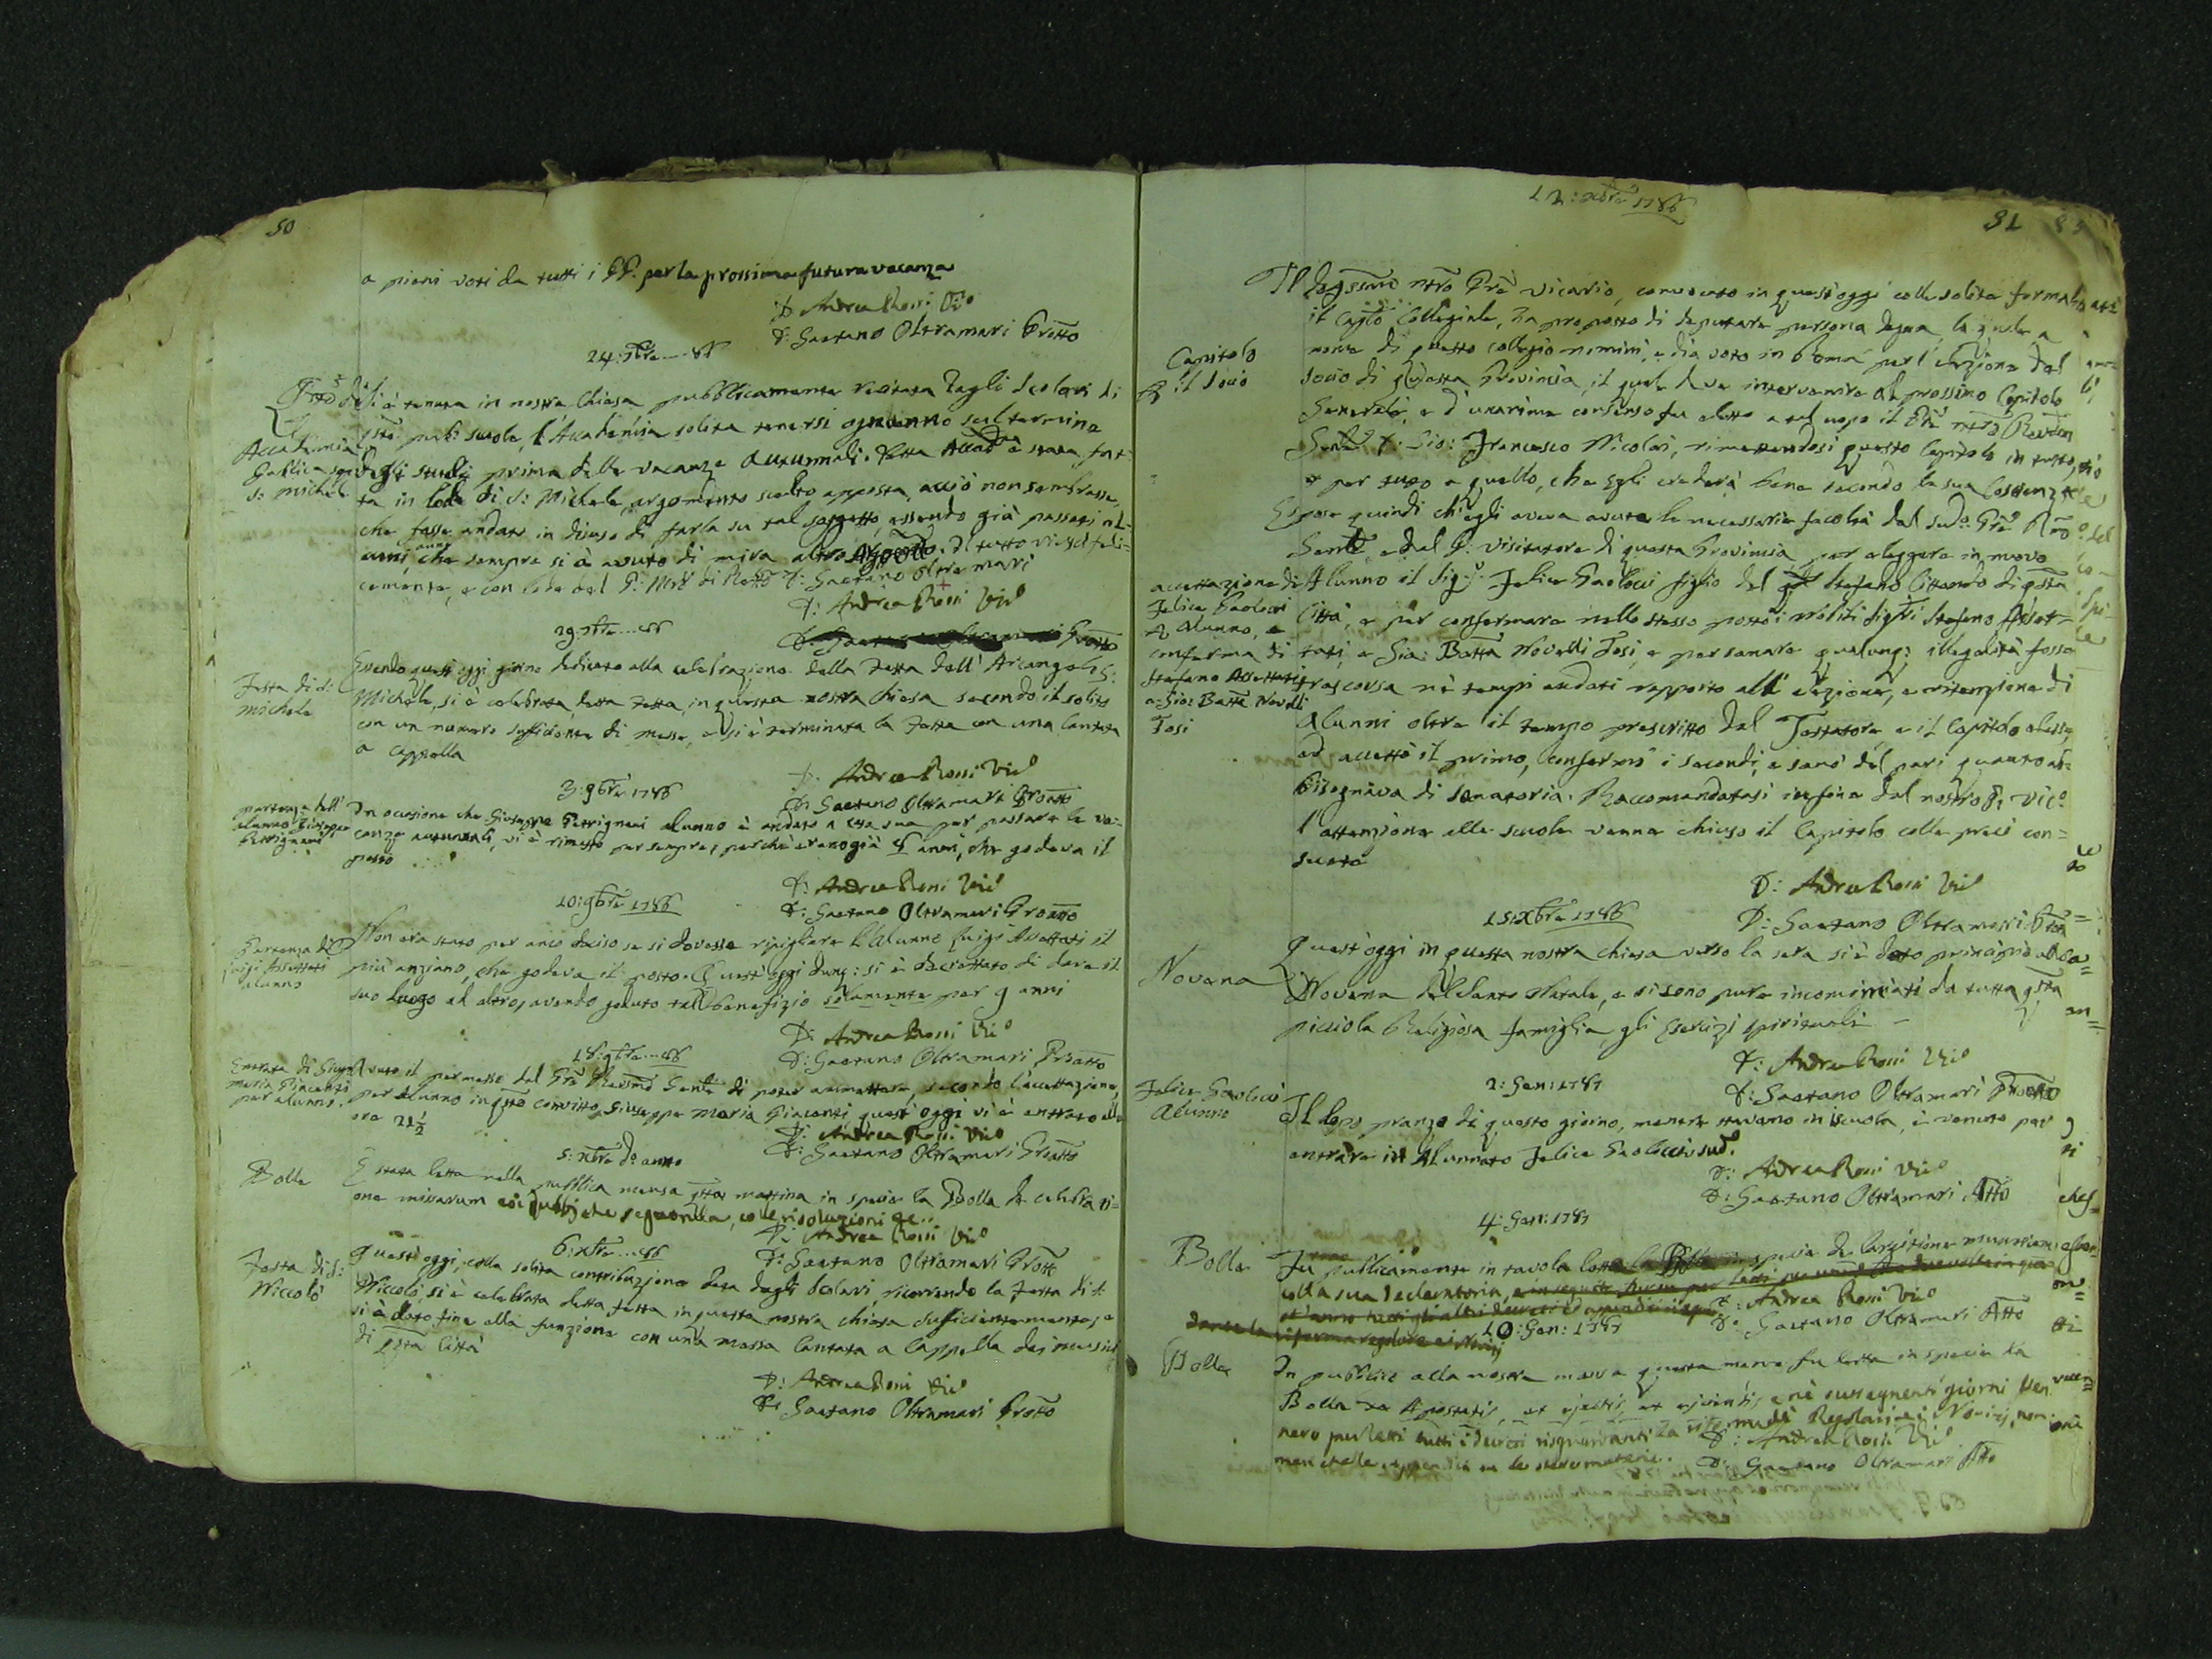 50
a pieni voti da tutti i PP. per la prossima futura vacanza
D. Andrea Rossi Vic.o
D. Gaetano Oltramari Proatto
24: 7bre 86
si è tenuta in nostra Chiesa pubblicamente recitata dagli Scolari di
Accademia
pubblica sopra
S. Michele
qste pub: scuole, l'Accademia solita tenersi ogni anno sul termine
degli studj prima delle vacanze autunnali. Detta Accad.a è stata fat-
ta in lode di S: Michele, argomento scelto apposta, acciò non sembrasse,
che fosse andato in disuso di farla su tal soggetto, essendo già passati al-
cuni anni, che sempre si è avuto di mira altro Argomto. Il tutto riuscì feli-
cemente, e con lode del P: di Retto D: Gaetano Oltramari
D: Andrea Rossi Vic.o
29: 7bre 86
D. Gaetano Oltramari Proatto
Festa di S:
Michele
Essendo quest'oggi giorno dedicato alla celebrazione della Festa dell'Arcangelo S:
Michele, si è celebrata detta Festa in questa nostra Chiesa secondo il solito
con un numero sufficiente di messe, e si è terminata la Festa con una Cantata
a Cappella
D. Andrea Rossi Vic.o
3: 9bre 1786
D. Gaetano Oltramari Proatto
partenza dell'
alunno Giuseppe
Petrignani
In occasione che Giuseppe Petrignani alunno è andato a casa sua per passare le va-
canze autunnali, vi è rimasto per sempre, perchè erano già anni, che godeva il
posto
D: Andrea Rossi Vic.o
10: 9bre 1786
D: Gaetano Oltramari Proatto
Partenza di
Luigi Assettati
alunno
Non era stato per anco deciso se si dovesse ripigliare l'Alunno Luigi Assettati il
più anziano, che godeva il posto. Quest'oggi dunq: si è decretato di dare il
suo luogo ad altro, avendo goduto tal benefizio solamente per 9 anni
D: Andrea Rossi Vic.o
18: 9bre 86
D: Gaetano Oltramari Proatto
Entrata di Gius.
Maria Piacenti
per alunno.
Avuto il permesso dal Pre Revsmo Genle di poter ammettere, secondo l'accettazione,
per Alunno in qsto convitto Giuseppe Maria Piacenti, quest'oggi vi è entrato alle
ore 21 1/2
D: Andrea Rossi Vic.o
5: Xbre do anno
D: Gaetano Oltramari Proatto
Bolla
È stata letta nella pubblica mensa qsta mattina in specie la Bolla de celebrati-
one missarum coi dubbj che seguonla, colle risoluzioni &c..
D: Andrea Rossi Vic.o
6: Xbre 86
D: Gaetano Oltramari Proatto
Festa di S:
Niccolò
Quest'oggi, colla solita contribuzione data dagli Scolari, ricorrendo la Festa di S:
Niccolò, si è celebrata detta festa in questa nostra chiesa sufficientemente, e
si è dato fine alla funzione con una messa Cantata a Cappella dei musici
di qsta Città
D: Andrea Rossi Vic.o
D: Gaetano Oltramari Proatto
12: Xbre 1786
51
Il Degssimo ntro Pre Vicario, convocato in quest'oggi colle solite formalità
il Caplo Collegiale, ha proposto di deputare persona degna, la quale a
Capitolo
p il Socio
nome di questo collegio nomini, e dia voto in Roma per l'elezione del
Socio di questa Provincia, il quale deve intervenire al prossimo Capitolo
Generale, e d'unanime consenso fu eletto a tal uopo il Pre ntro Reveren
Genle D: Gio: Francesco Nicolai, rimettendosi questo Capitolo in tutto,
e per tutto a quello, che Egli crederà bene secondo la sua Coscienza
Espose quindi ch'egli aveva avuta la necessaria facoltà dal sudo: Pre Rmo
Genle, e dal P: Visitatore di questa Provincia per eleggere in nuovo
accettazione di
Felice Paolocci
p Alunno, e
conferma di
Stefano Assettati,
e Gio: Batta Novelli
Tosi
Alunno il Sig.r Felice Paolocci figlio del Stefano Cittadino di qsta
Città, e per confermare nello stesso posto i Nobili Sigri Stefano Asset-
tati, e Gio: Batta Novelli Tosi, e per sanare qualunq: illegalità fosse
trascorsa nè tempi andati rapporto all'elezione, e ritenzione di
Alunni oltre il tempo prescritto dal Testatore e il Capitolo elesse
ed accettò il primo, confermò i secondi, e sanò del pari quanto ab-
bisognava di sanatoria. Raccomandatasi infine dal nostro P. Vic.o
l'attenzione alle scuole venne chiuso il Capitolo colle preci con-
suete
D: Andrea Rossi Vic.o
15: Xbre 1786
D: Gaetano Oltramari
Novena
Quest'oggi in questa nostra chiesa verso la sera si è dato principio alla
Novena del Santo Natale, e si sono pure incominciati da tutta qsta
picciola Religiosa famiglia gli Esercizj spirituali
D: Andrea Rossi Vic.o
2: Gen: 1787
D: Gaetano Oltramari Proatto
Felice Paolocci
Alunno
Il dopo pranzo di questo giorno, mentre stavamo in scuola, è venuto per
entrare in Alunnato Felice Paolocci sud.o
D: Andrea Rossi Vic.o
D: Gaetano Oltramari Atto
4: Gen: 1787
Bolla
Fu publicamente in tavola letta la Bolla in specie de largitione munerum
colla sua declaratoria,
D: Andrea Rossi Vic.o
D: Gaetano Oltramari Atto
10: Gen: 1787
Bolla
In publico alla nostra mensa questa mane fu letta in specie la
Bolla de Apostatis, et ejectis, et ejiciendis e nè susseguenti giorni ven-
nero pur letti tutti i decreti risguardanti la riforma de' Regolari e i Novizj, non
men che le appendici su le stesse materie.
D: Andrea Rossi Vic.o
D: Gaetano Oltramari Atto